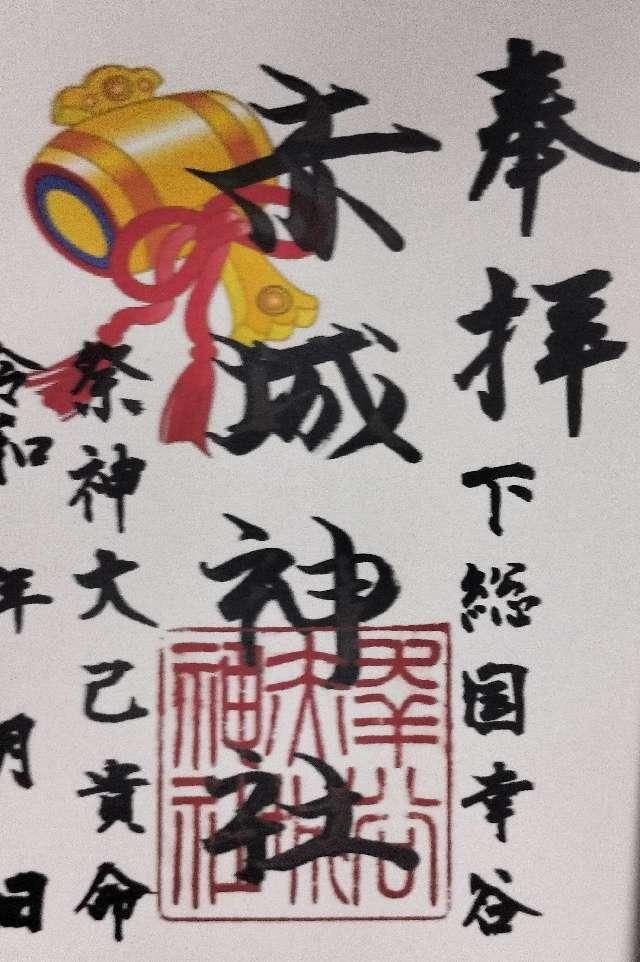 奉拝
下総国幸谷
赤城神社
幸谷
赤城
神社
祭神大己貴命
令和 年 月 日